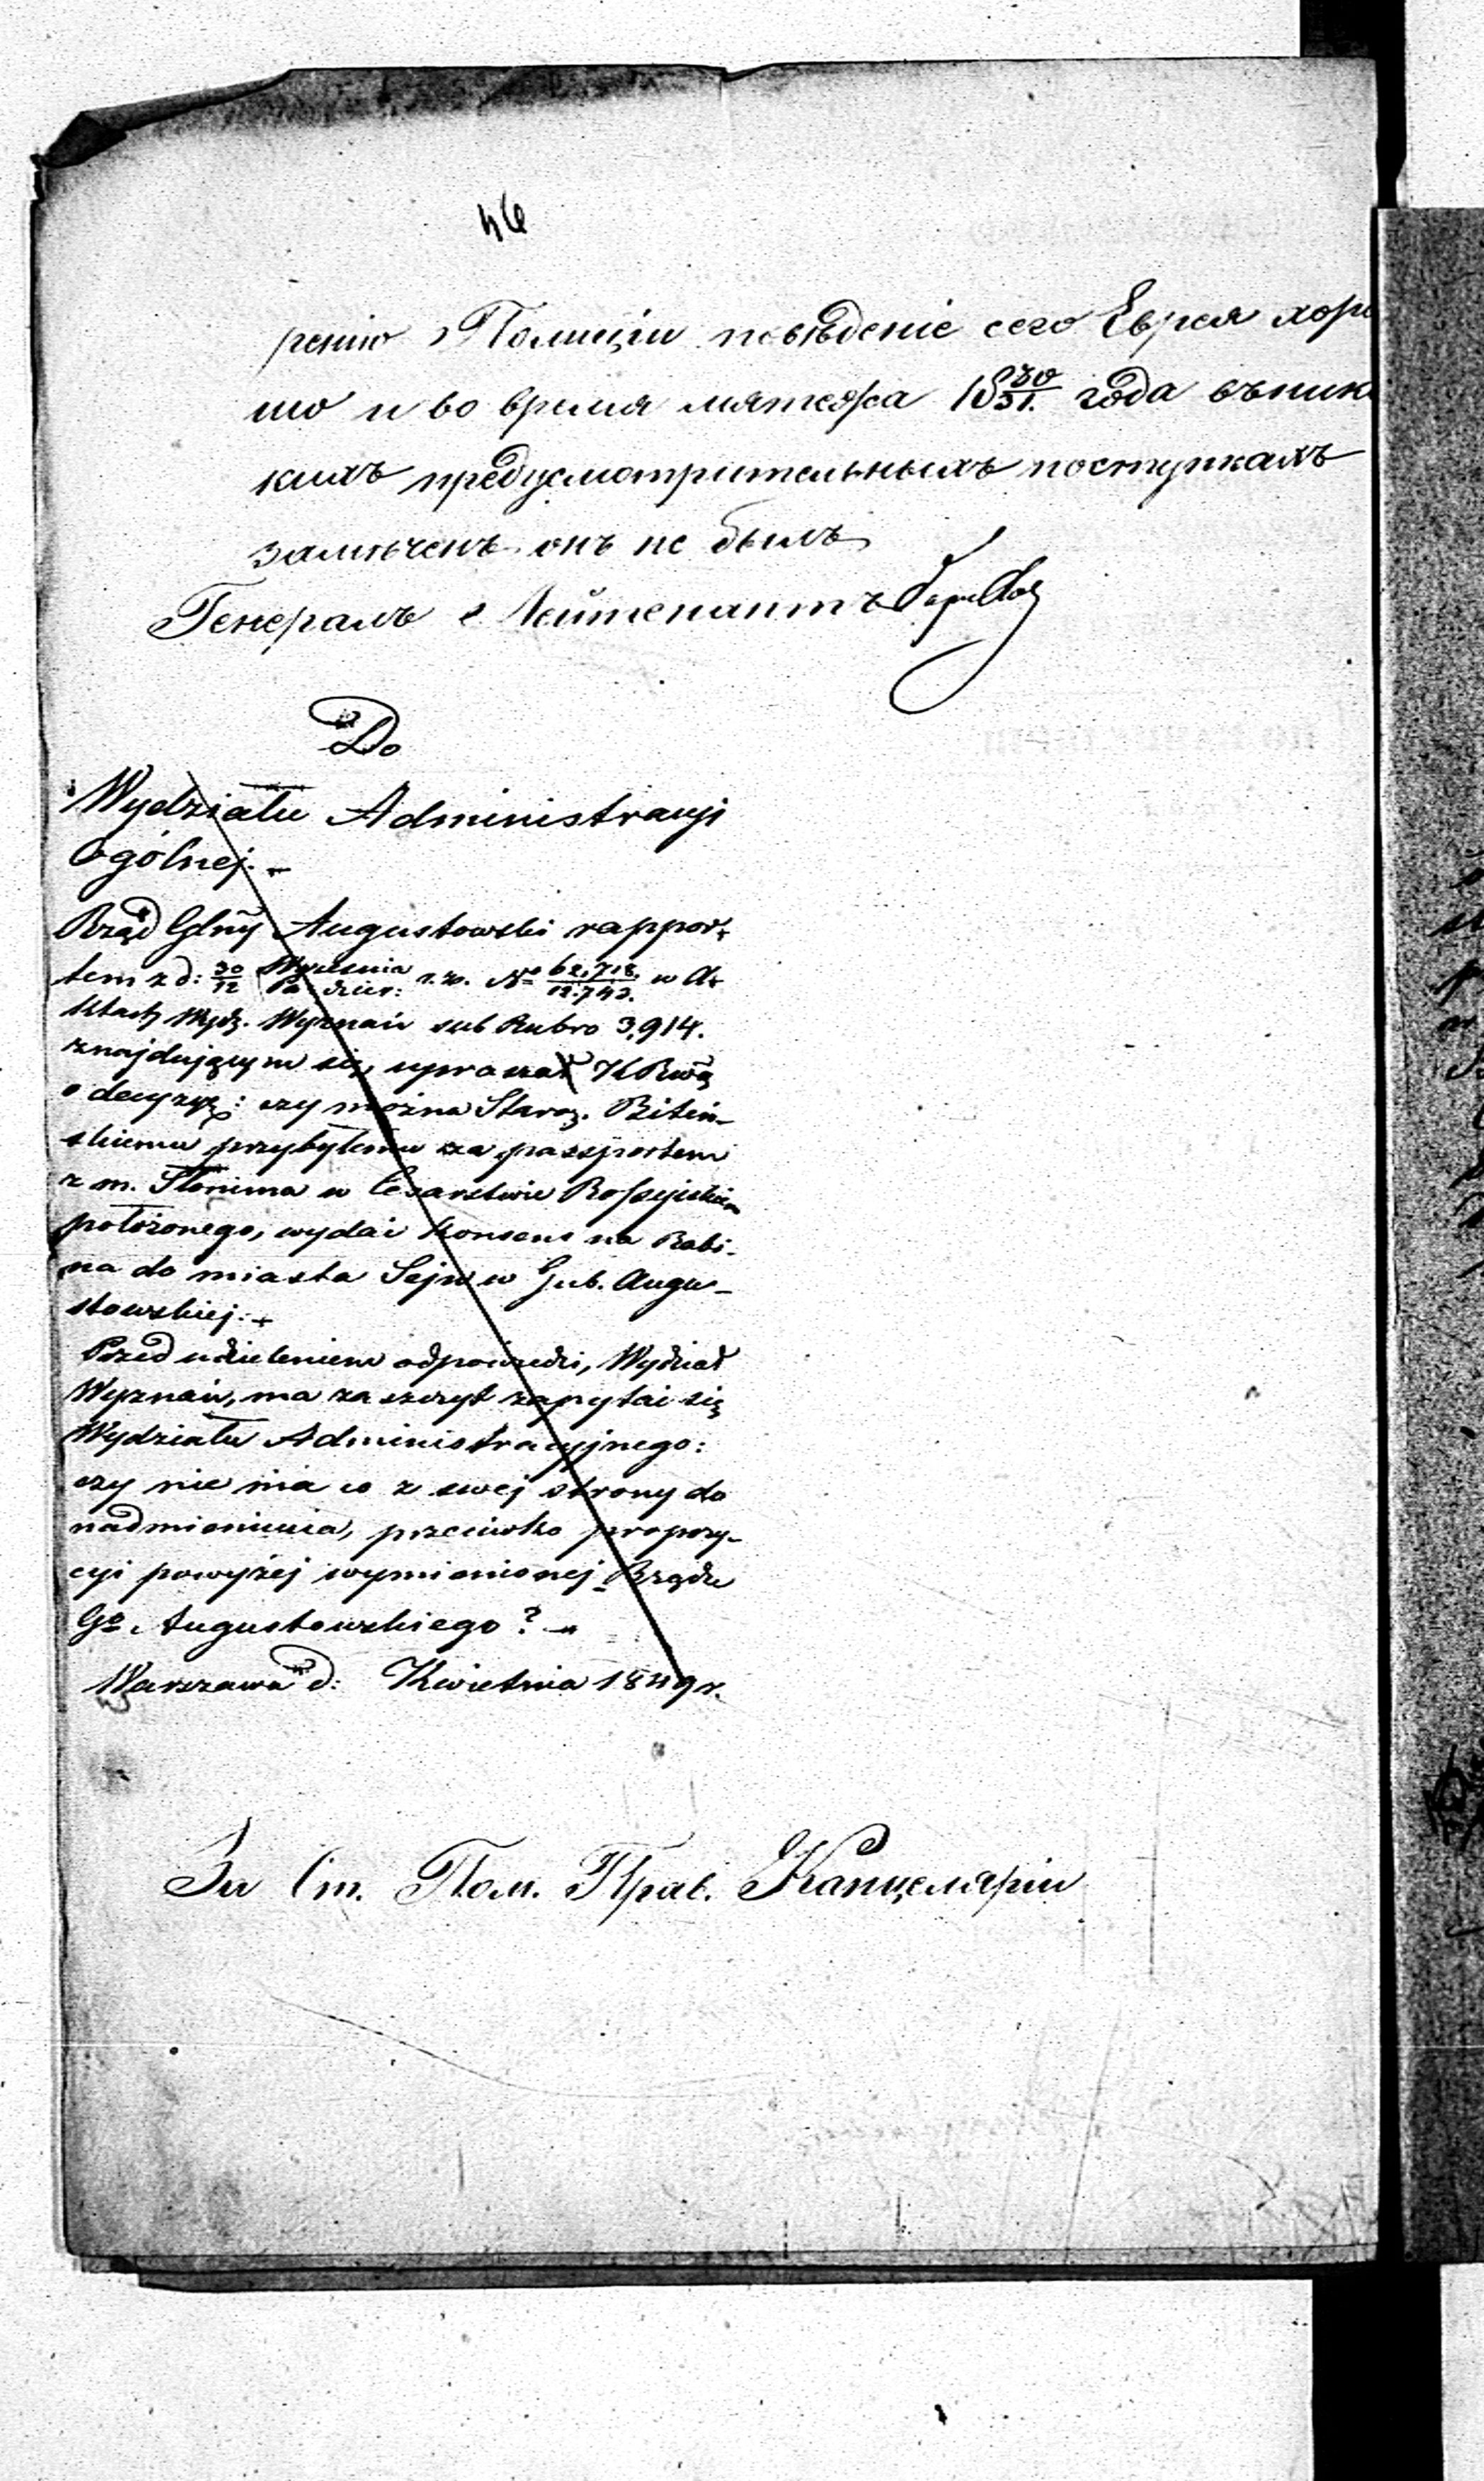 46
рению Полиціи повѣденіе сего Еврея хоро
шо и во время мятежа 18 30/31. года въ ника
кихъ предусмотрительныхъ поступкахъ
замѣченъ онъ не былъ
Генералъ Лейтенантъ
Do
Wydziału Administracyi
Ogólnej. -
Rząd Glny Augustowski rappor-
tem z d: 30/12 Września/Paździer: r. z. No 62,718./12.743. w A-
ktach Wydz. Wyznań sub Rubro 3,914.
znajdującym się, upraszał KRwą
o decyzyę: czy można Staroz. Biteń-
skiemu przybyłemu za passportem
z m. Słonima w Cesarstwie Rossyiskiem
położonego, wydać konsens na Rabi-
na do miasta Sejn w Gub. Augu-
stowskiej. -
Przed udzieleniem odpowiedzi, Wydział
Wyznań, ma zaszczyt zapytać się
Wydziału Administracyjnego:
czy nie ma co z swej strony do
nadmienienia, przeciwko propozy-
cyi powyżej wymienionej Rządu
Go Augustowskiego? -
Warszawa d: Kwietnia 1849 r.
За Ст. Пом. Прав. Канцеляріи